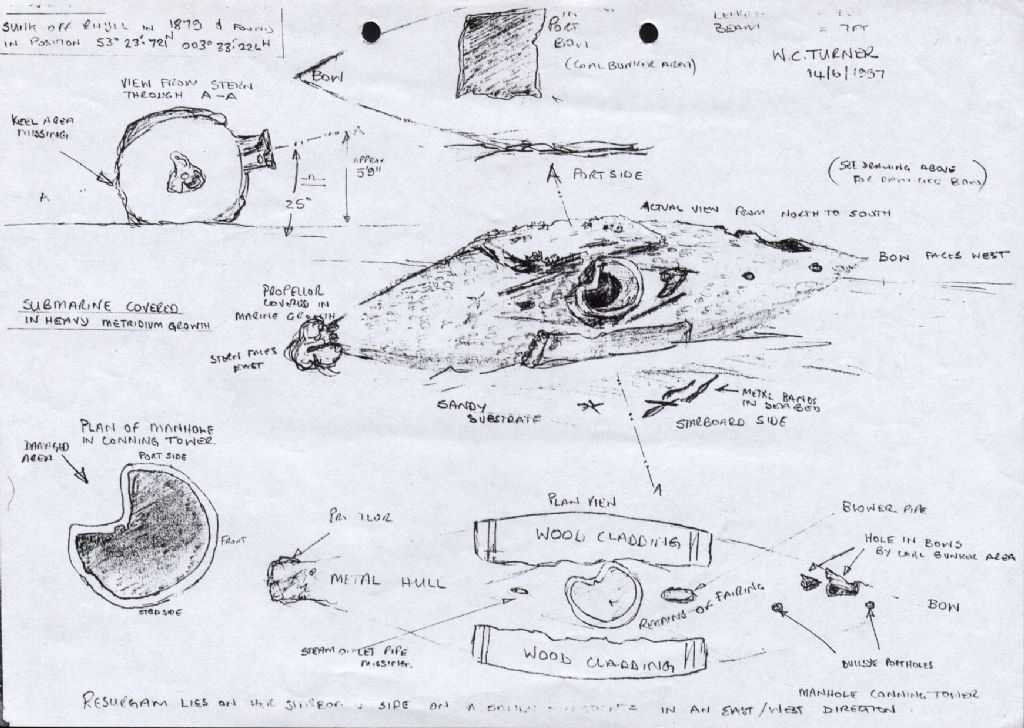 SUNK OFF RHYL IN 1879 & FOUND
IN POSITION 53° 23'·72N 003° 33'·22
BOW
IN
PORT
BOW
(COAL BUNKER AREA)
BEAM = 7FT
W.C. TURNER
14/6/1997
VIEW FROM STERN
THROUGH A-A
KEEL AREA
MISSING.
A
A
APPROX
5'9"
25°
A PORT SIDE
(SEE DRAWING ABOVE
FOR DAMAGED BOW)
ACTUAL VIEW FROM NORTH TO SOUTH
BOW FACES WEST
SUBMARINE COVERED
IN HEAVY METRIDIUM GROWTH
PROPELLOR
COVERED IN
MARINE GROWTH
STERN FACES
EAST
SANDY
SUBSTRATE
METAL BANDS
IN SEABED
STARBOARD SIDE
PLAN OF MANHOLE
IN CONNING TOWER
PORT SIDE
DAMAGED
AREA
FRONT
STBD SIDE
A
PLAN VIEW
WOOD CLADDING
BLOWER PIPE
HOLE IN BOWS
BY COAL BUNKER AREA
METAL HULL
REMAINS OF FAIRING
BOW
STEAM OUTLET PIPE
MISSING.
WOOD CLADDING
BULLSEYE PORTHOLES
MANHOLE CONNING TOWER
RESURGAM LIES ON HER SIDE ON A IN AN EAST/WEST DIRECTION.